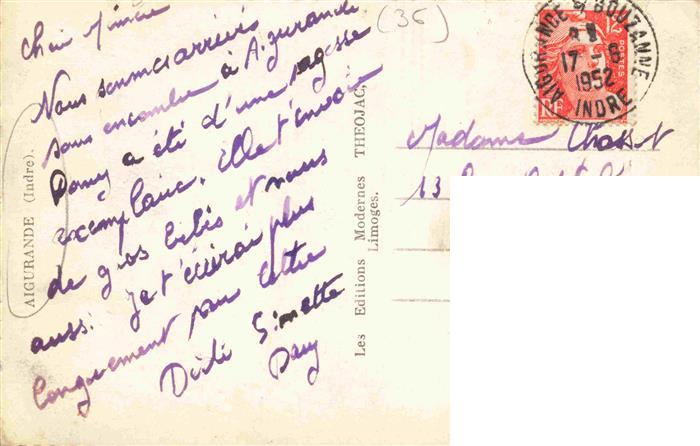 Chère Mimine
Nous sommes arrivés
sans encombre à Aigurande
Dany a été d'une sagesse
exemplaire. Elle t'envoie
de gros bibis et nous
aussi. Je t'écrirai plus
longuement par lettre
Didi Simette
Dany
AIGURANDE (Indre).
Les Editions Modernes THEOJAC,
Limoges.
(36)
AIGURANDE S BOUZANNE
17 - 6
1952
INDRE
POSTES
Madame
13